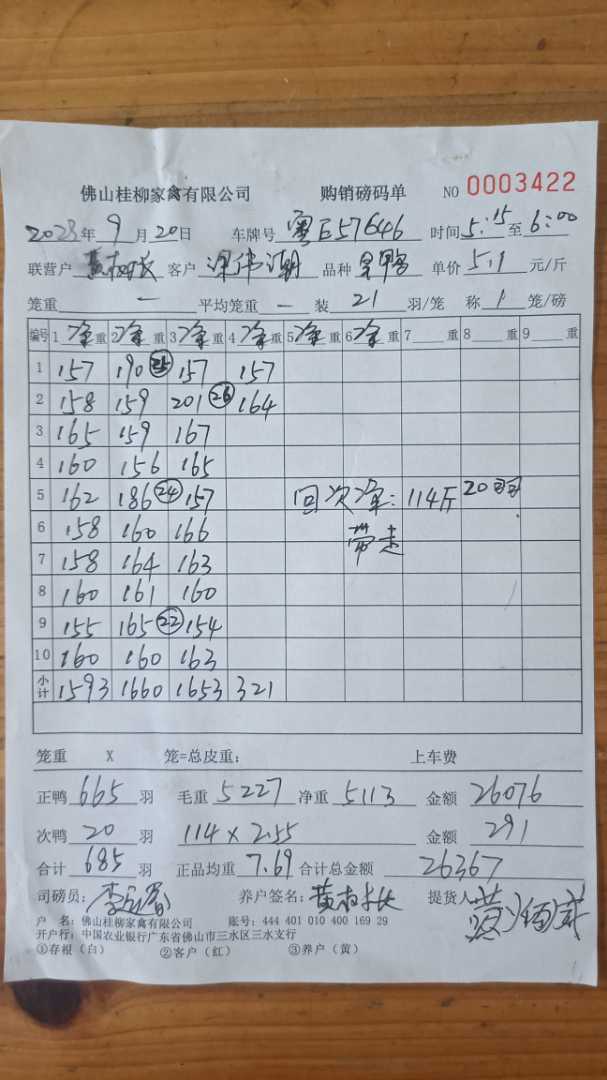 佛山桂柳家禽有限公司 购销磅码单 NO 0003422
2023年 9月 20日 车牌号 粤E57646 时间 5:15 至 6:00
联营户 黄 客户 伟潮 品种 单价 5.1 元/斤
笼重 — 平均笼重 — 装 21 羽/笼 称 1 笼/磅
编号 1 净重 2 净重 3 净重 4 净重 5 净重 6 净重 7 重 8 重 9 重
1 157 190 (25) 157 157
2 158 159 201 (26) 164
3 165 159 167
4 160 156 165
5 162 186 (24) 157 回次净:114斤 20羽
6 158 160 166 带走
7 158 164 163
8 160 161 160
9 155 165 (22) 154
10 160 160 163
小计 1593 1660 1653 321
笼重 X 笼=总皮重: 上车费
正鸭 665 羽 毛重 5227 净重 5113 金额 26076
次鸭 20 羽 114 x 2.55 金额 291
合计 685 羽 正品均重 7.69 合计总金额 26367
司磅员: 李 养户签名: 黄 提货人 黄
户 名: 佛山桂柳家禽有限公司 账号: 444 401 010 400 169 29
开户行: 中国农业银行广东省佛山市三水区三水支行
①存根(白) ②客户(红) ③养户(黄)